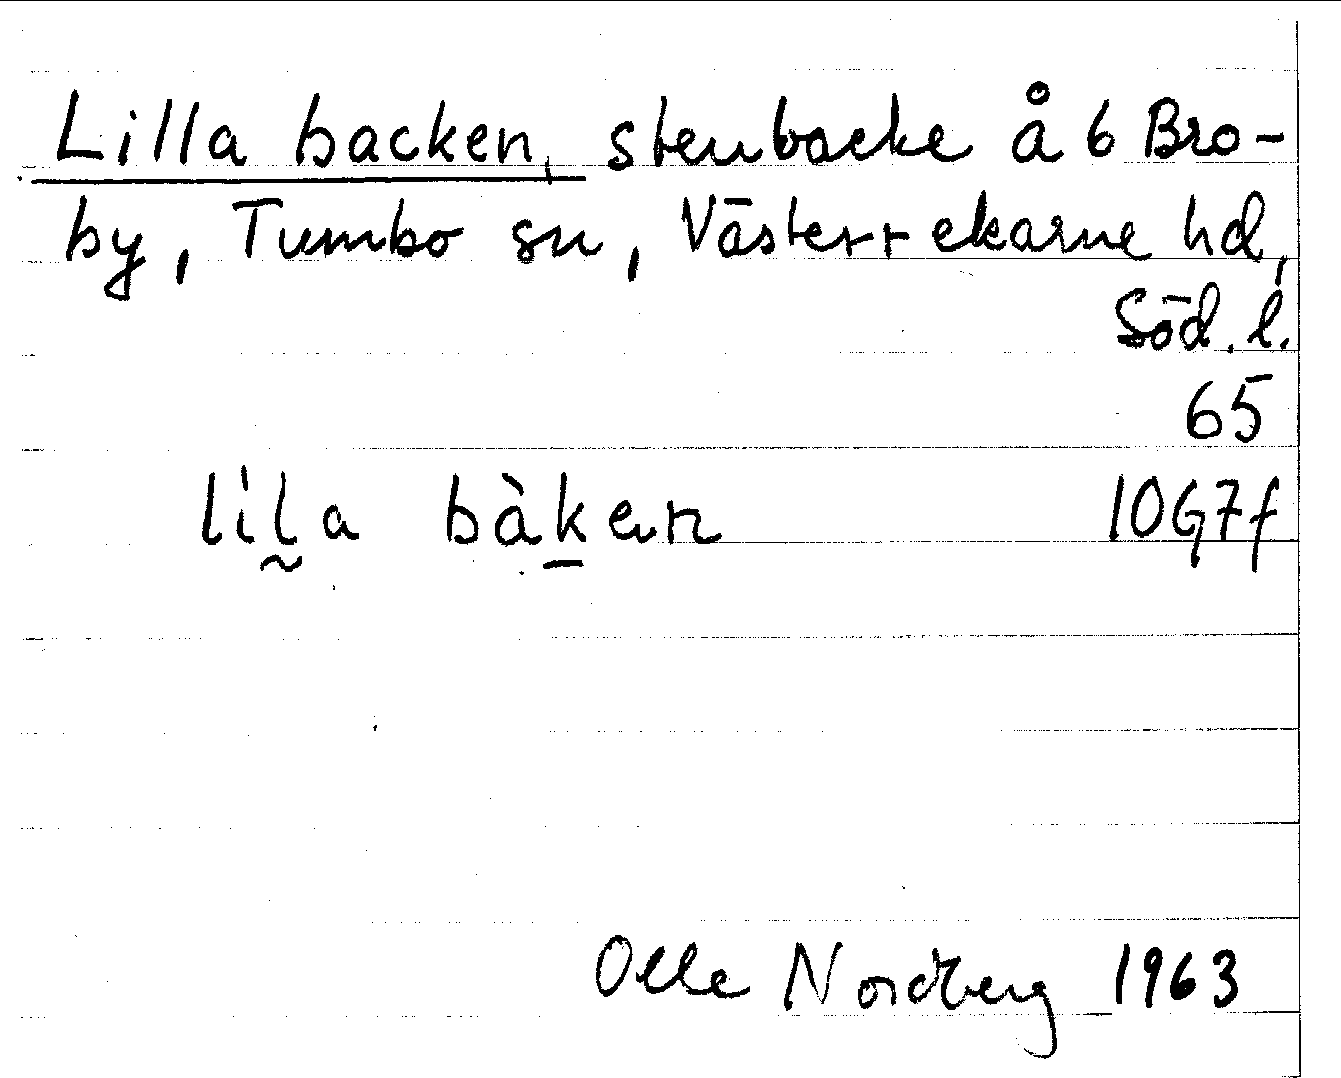 Lilla backen, stenbacke å 6 Bro-
by, Tumbo sn, Västerrekarne hd,
Söd. l.
65
lìl̰a bàk̲en 10G7f
Olle Nordberg 1963